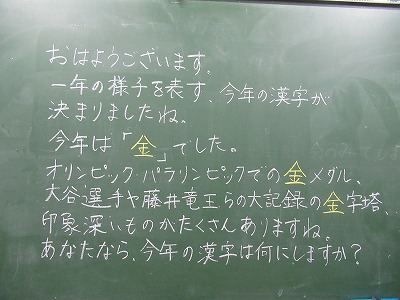 おはようございます。
一年の様子を表す、今年の漢字が
決まりましたね。
今年は「金」でした。
オリンピック・パラリンピックでの金メダル、
大谷選手や藤井竜王らの大記録の金字塔、
印象深いものがたくさんありますね。
あなたなら、今年の漢字は何にしますか？